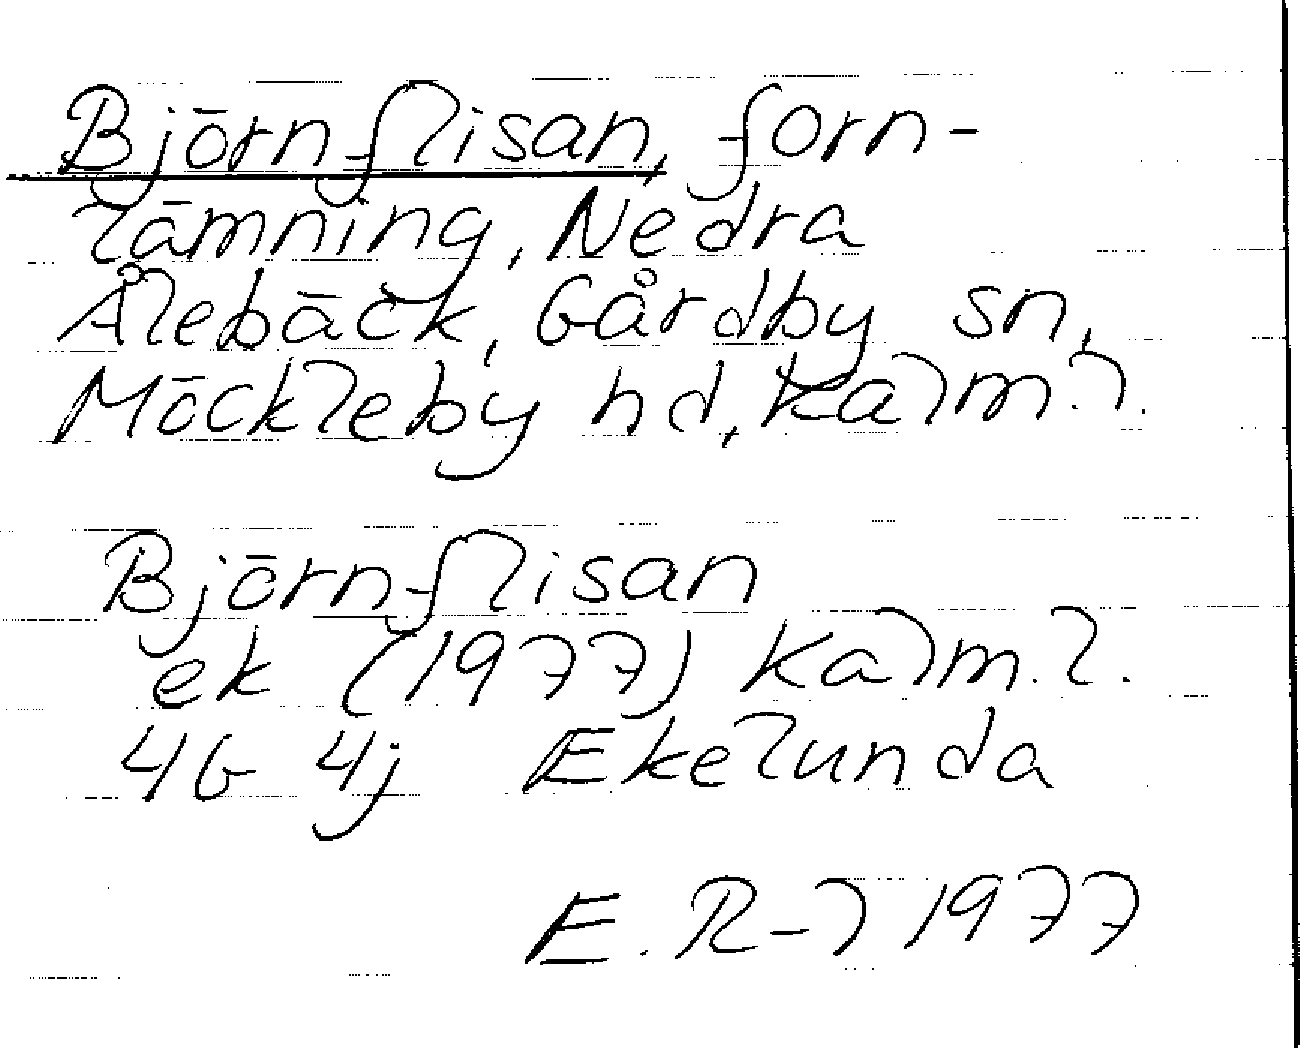 Björnflisan, forn-
lämning, Nedra
Ålebäck, Gårdby sn,
Möckleby hd, Kalm.l.
Björnflisan
ek (1977) Kalm.l.
4G 4j Ekelunda
E. R-l 1977